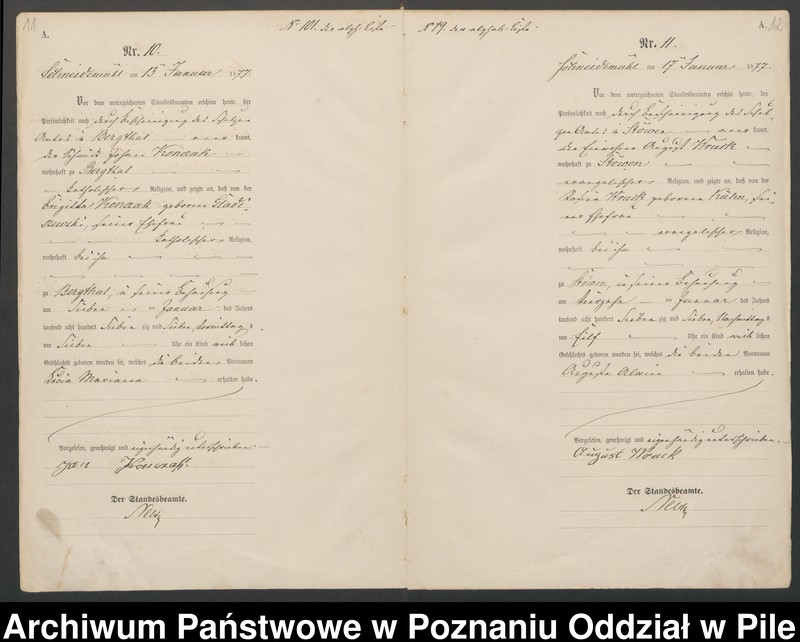 11
A.
Nº 101. der
Nr. 10.
Schneidemühl am 13ten Januar 1877.
Vor dem unterzeichneten Standesbeamten erschien heute, der
Persönlichkeit nach durch Bescheinigung des Schulzen
Amtes in Bergthal kannt,
der Johann Konczak
wohnhaft zu Bergthal
katholischer Religion, und zeigte an, daß von der
Brigitta Konczak geborene
seine Ehefrau
katholischer Religion,
wohnhaft bei ihm
zu Bergthal, in seiner Behausung
am Sieben ten Januar des Jahres
tausend acht hundert Sieben zig und Sieben, Vormittags
um Sieben Uhr ein Kind weib lichen
Geschlechts geboren worden sei, welches die beiden Vornamen
Marianna erhalten habe.
Vorgelesen, genehmigt und eigenhändig unterschrieben.
Jan Konczak.
Der Standesbeamte.
A. 12
Nº 79. der
Nr. 11.
Schneidemühl am 17ten Januar 1877.
Vor dem unterzeichneten Standesbeamten erschien heute, der
Persönlichkeit nach durch Bescheinigung des Schul-
zen Amtes in Stöwen kannt,
der Einwohner August Wruck
wohnhaft zu Stöwen
evangelischer Religion, und zeigte an, daß von der
Wruck geborene Kühn, sei-
ner Ehefrau
evangelischer Religion,
wohnhaft bei ihm
zu Stöwen, in seiner Behausung
am ten Januar des Jahres
tausend acht hundert Sieben zig und Sieben, Nachmittags
um Elf Uhr ein Kind weib lichen
Geschlechts geboren worden sei, welches die beiden Vornamen
Auguste erhalten habe.
Vorgelesen, genehmigt und eigenhändig unterschrieben.
August Wruck
Der Standesbeamte.
Archiwum Państwowe w Poznaniu Oddział w Pile